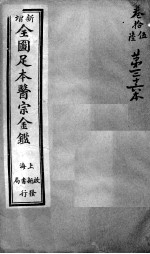 卷拾伍陸
第三十六本
新增
全圖足本醫宗金鑑
上海
啟新書局
發行